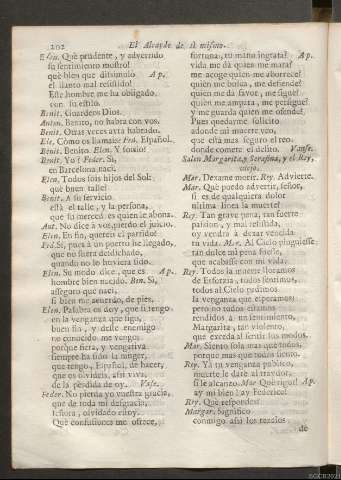 202
El Alcayde de sì mismo.
Elen. Què prudente, y advertido
su sentimiento mostrò!
què bien que dissimulò Ap.
el llanto mal resistido!
Este hombre me ha obligado,
con su estilo.
Benit. Guardeos Dios.
Anton. Benito, no habra con vos.
Benit. Otras veces avrà habrado.
Ele. Còmo os llamais? Fed. Español.
Benit. Yo Benito. Elen. Y sois?
Benit. Yo? Feder. Sì,
en Barcelona nacì.
Elen. Todos sois hijos del Sol:
què buen talle!
Benit. A su servicio
està el talle, y la persona,
que su merced es quien le abona.
Ant. No dice à vos, pierdo el juicio.
Elen. En fin, quereis el partido?
Fed. Sì, pues à un puerto he llegado,
que no fuera desdichado,
quando no lo huviera sido.
Elen. Su modo dice, que es Ap.
hombre bien nacido. Ben. Sì,
asseguro que nacì,
si bien me acuerdo, de pies.
Elen. Palabra os doy, que si tengo
en la venganza que sigo,
buen fin, y de este enemigo
no conocido me vengo,
porque fiera, y vengativa
siempre ha sido la muger,
que tengo, Español, de hacer,
que os olvideis, assi viva,
de la pèrdida de oy. Vase.
Feder. No pierda yo vuestra gracia,
que de toda mi desgracia,
señora, olvidado estoy.
Què confusiones me ofrece,
fortuna, tu mano ingrata? Ap.
vida me dà quien me mata?
me acoge quien me aborrece?
quien me busca, me defiende?
quien me dà favor, me sigue?
quien me ampara, me persigue?
y quien me guarda me ofende?
Pues quedarme solicito
adonde mi muerte veo,
que està mas seguro el reo
donde comete el delito. Vanse.
Salen Margarita, y Serafina, y el Rey,
viejo.
Mar. Dexame morir. Rey. Advierte.
Mar. Què puedo advertir, señor,
si es de qualquiera dolor
ultima linea la muerte?
Rey. Tan grave pena, tan fuerte
passion, y mal resistida,
oy vendrà à dexar vencida
tu vida. Mar. Al Cielo pluguiesse
tan dulce mi pena fuesse,
que acabasse con mi vida.
Rey. Todos la muerte lloramos
de Esforzia, todos sentimos,
todos al Cielo pedimos
la venganza que esperamos;
pero no todos estamos
rendidos à un sentimiento,
Margarita, tan violento,
que exceda al sentir los modos.
Mar. Siento sola mas que todos,
porque mas que todos siento.
Rey. Yà tu venganza publico,
muerte le darè al traydor,
si le alcanzo. Mar. Què rigor! Ap.
ay mi bien! ay Federico!
Rey. Què respondes?
Margar. Significo
conmigo assi los rezelos
de